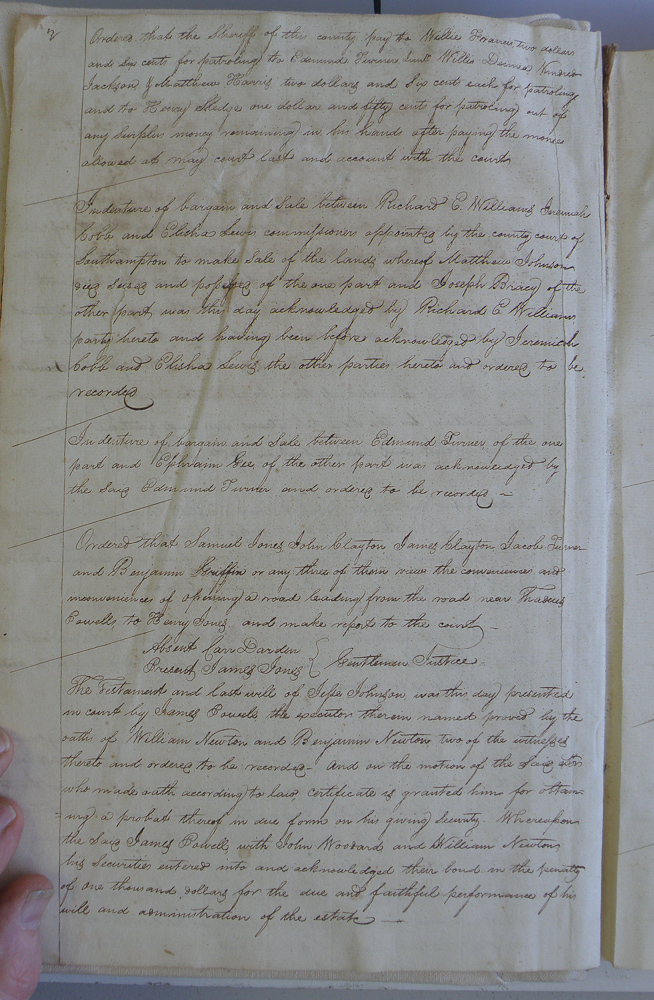 Ordered that the Sheriff of this county pay to Willie Francis two dollars
and six cents for patroling to Edmund Turner Willis
Jackson & Matthew Harris two dollars and Six cents each for patroling
and to Henry Sledge one dollar and fifty cents for patroling out of
any surplus money remaining in his hands after paying the monies
allowed at may court last and account with the court
Indenture of bargain and Sale between Richard E. Williams Jeremiah
Cobb and Elisha Lewis commissioner appointed by the county court of
Southampton to make Sale of the land whereof Matthew Johnson
died Seised and possessed of the one part and Joseph Bracy of the
other part was this day acknowledged by Richard E Williams
party hereto and having been before acknowledged by Jeremiah
Cobb and Elisha Lewis the other parties hereto and ordered to be
recorded
Indenture of bargain and Sale between Edmund Turner of the one
part and Ephraim Gee of the other part was acknowledged by
the Said Edmund Turner and ordered to be recorded –
Ordered that Samuel Jones John Clayton James Clayton Jacob Turner
and Benjamin Griffin or any three of them view the conveniences and
inconveniences of opening a road leading from the road near
Powells to Henry Jones and make report to the court –
Absent Carr Darden
Present James Jones } Gentlemen Justice
The Testament and last will of Jesse Johnson was this day presented
in court by James Powell the executor therein named proved by the
oaths of William Newton and Benjamin Newton two of the witnesses
thereto and ordered to be recorded – And on the motion of the Said exor
who made oath according to law certificate is granted him for obtain-
-ing a probat thereof in due form on his giving Security. Whereupon
the Said James Powell with John Woodard and William Newton
his Securities entered into and acknowledged their bond in the penalty
of one thousand dollars for the due and faithful performance of his
will and administration of the estate –